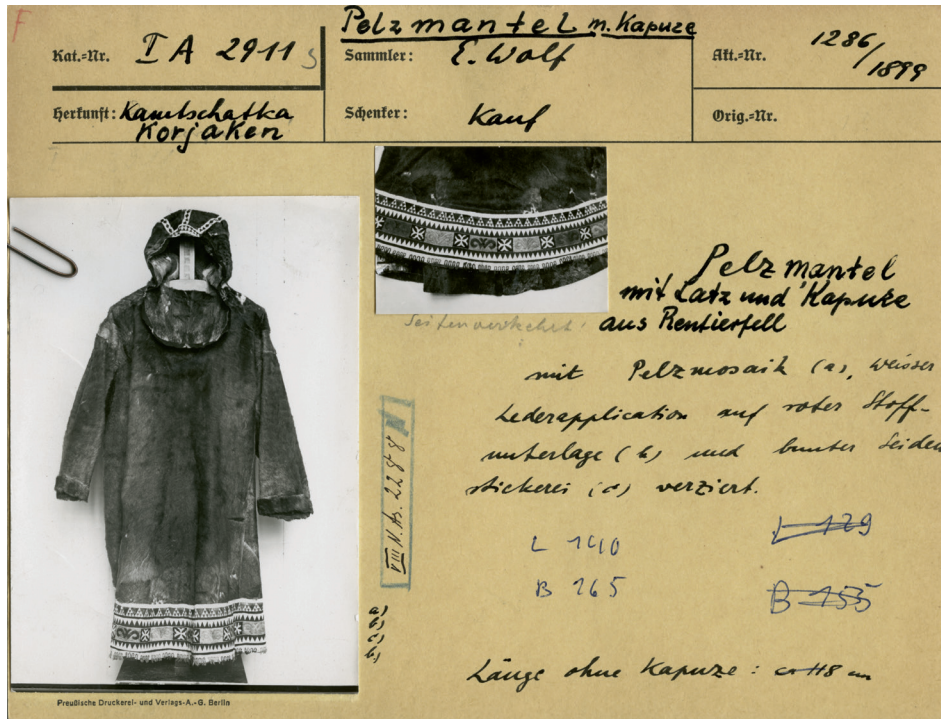 F
Pelzmantel m. Kapuze
Kat.=Nr. I A 2911
Sammler: E. Wolf
Akt.=Nr. 1286/1899
Herkunft: Kamtschatka
Korjaken
Schenker: Kauf
Orig.=Nr.
Seitenverkehrt!
Pelzmantel
mit Latz und Kapuze
aus Rentierfell
mit Pelzmosaik (a), weisser
Lederapplication auf roter Stoff-
unterlage (b) und bunter Seiden
stickerei (c) verziert.
VIII N. As. 2288
L 140
L 129
B 165
B 155
Länge ohne Kapuze: ca 118 cm
Preußische Druckerei- und Verlags-A.-G. Berlin